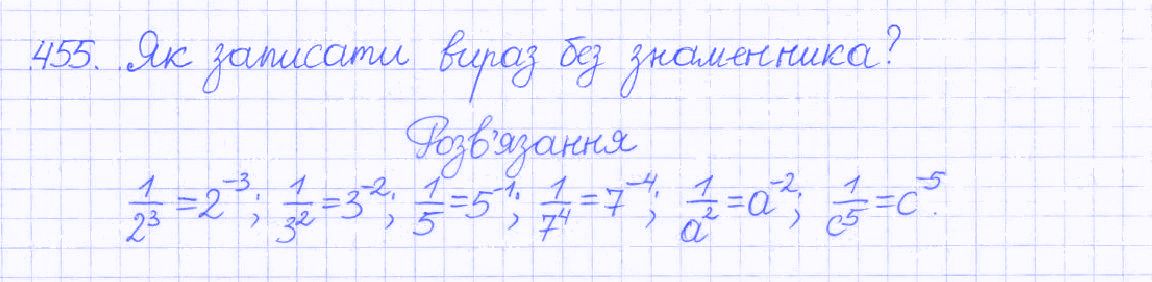 455. Як записати вираз без знаменника?
Розв'язання
1/2³ = 2⁻³; 1/3² = 3⁻²; 1/5 = 5⁻¹; 1/7⁴ = 7⁻⁴; 1/a² = a⁻²; 1/c⁵ = c⁻⁵.